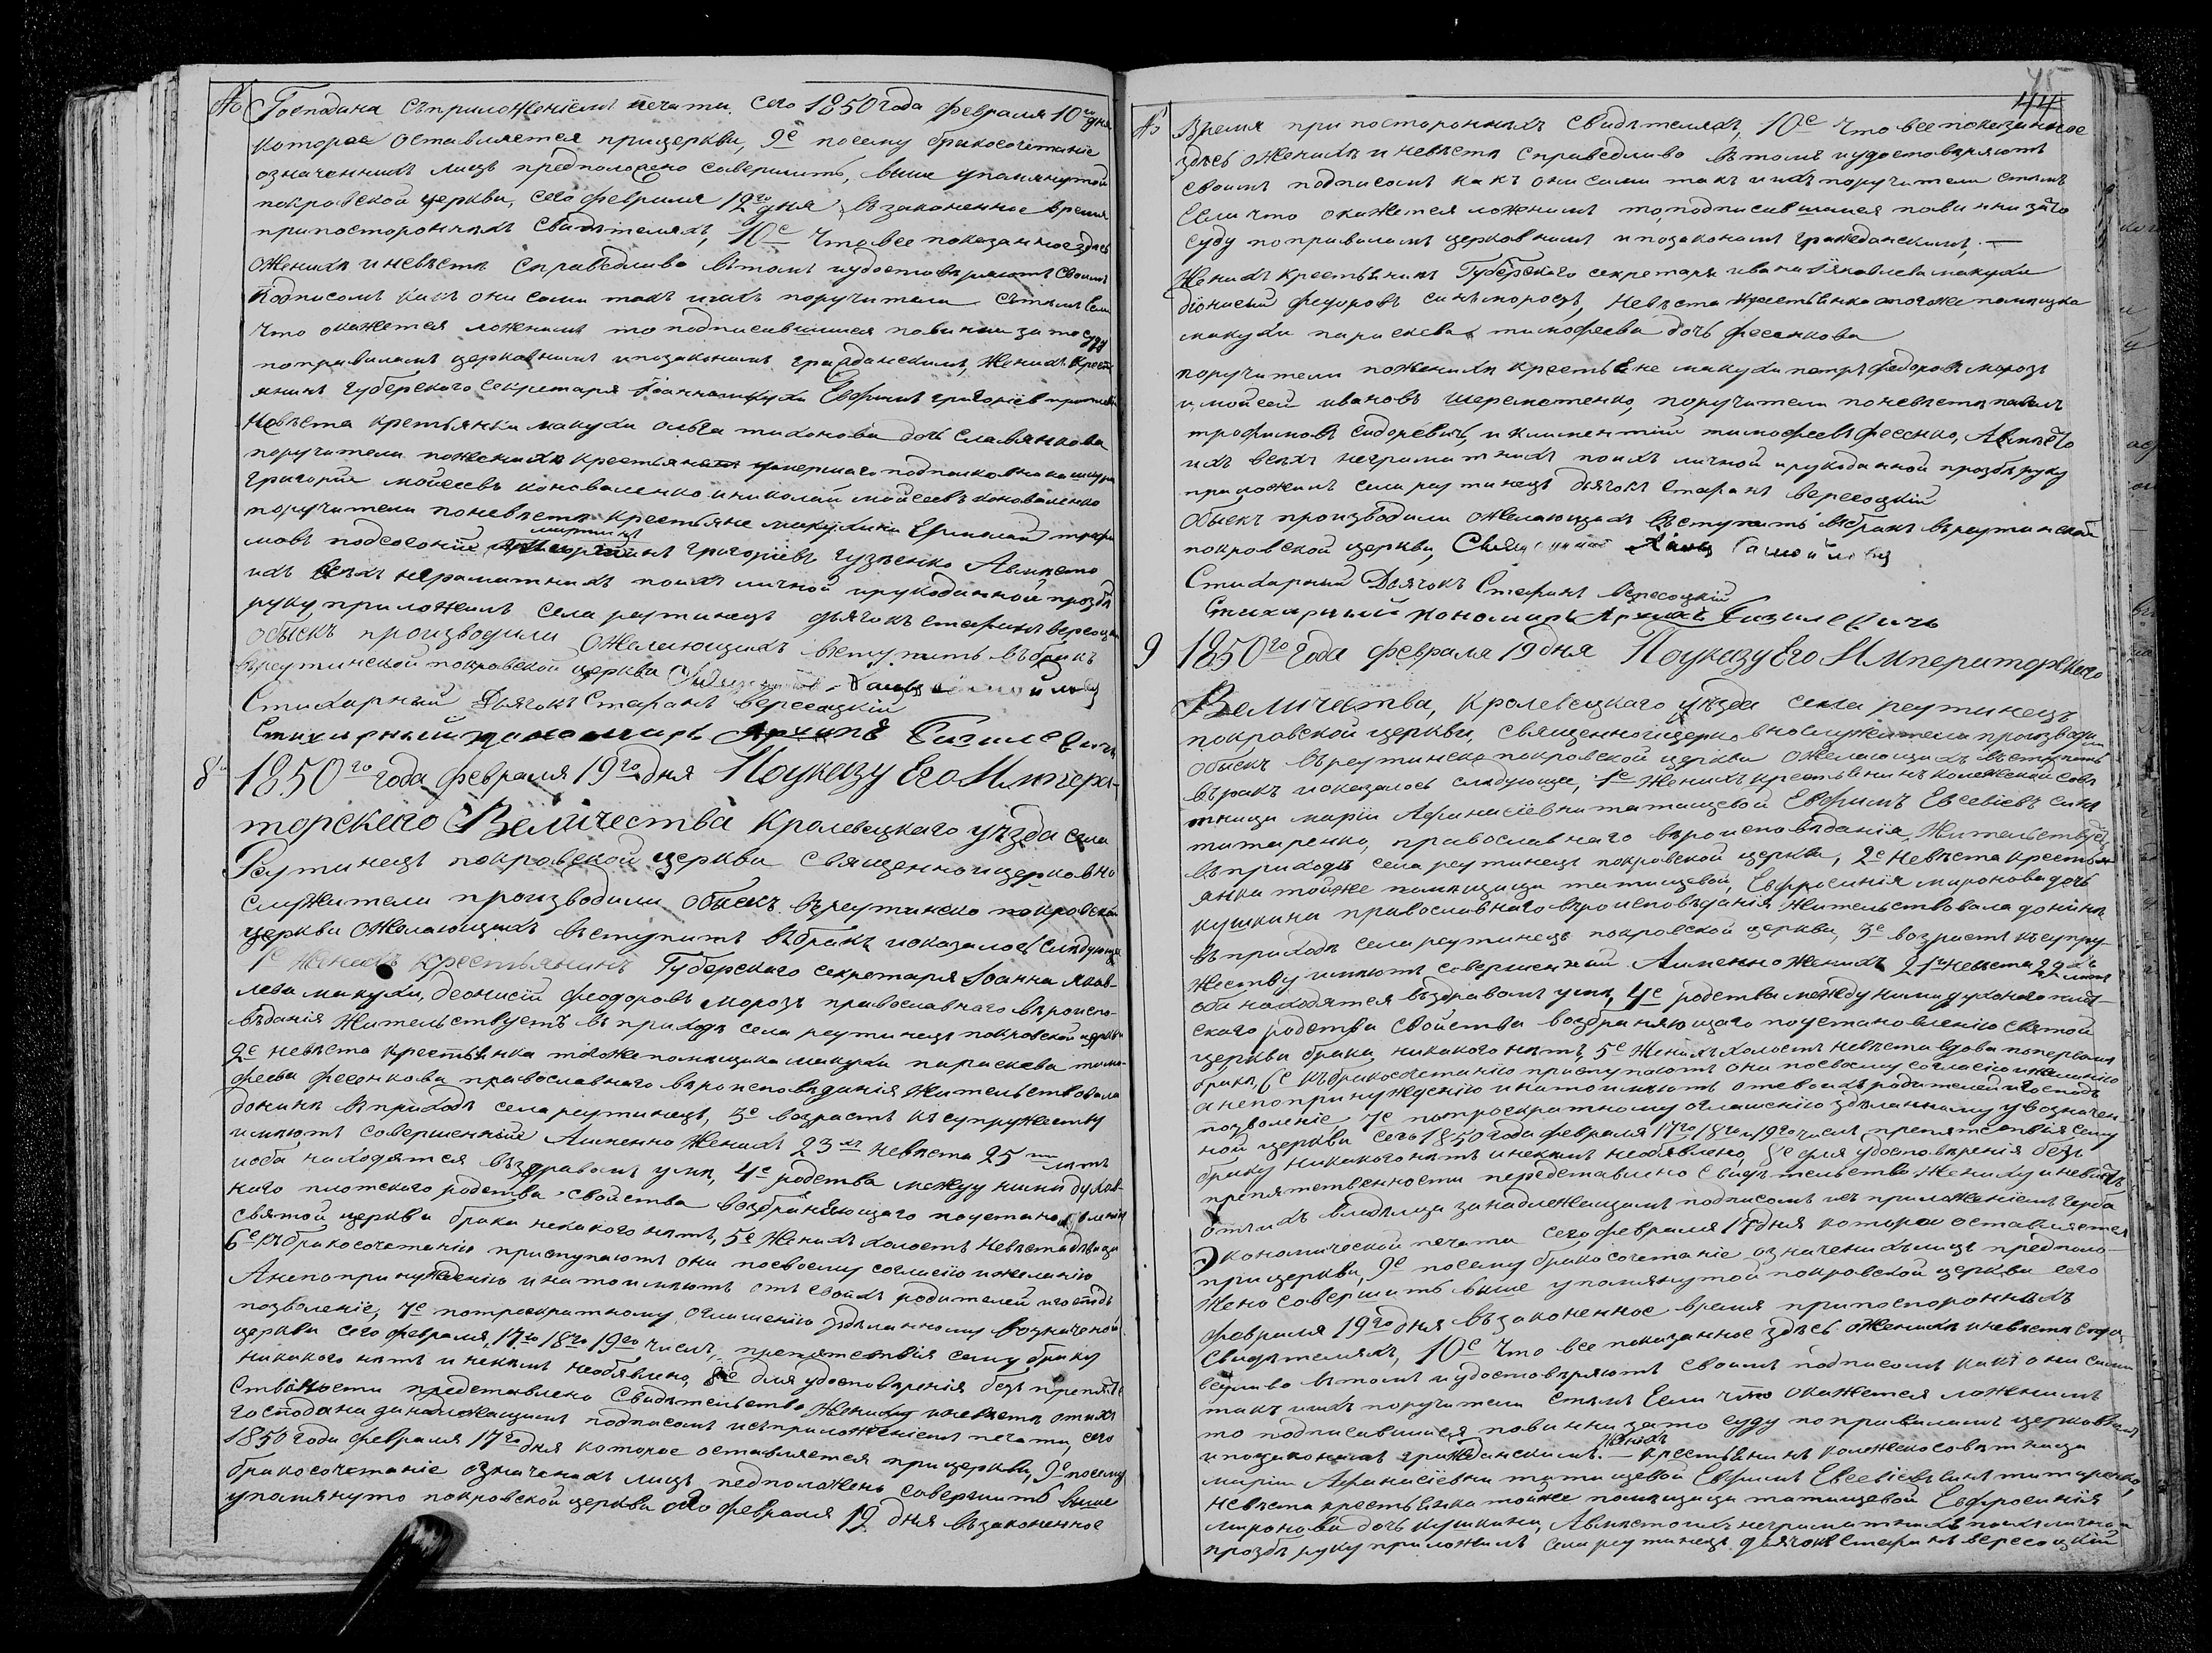 № Господина съ приложеніемъ печати сего 1850 года февраля 10го дня
которое оставляется прицеркви, 9е посему бракосочетаніе
означенныхъ лицъ предположено совершить, выше упомянутой
покровской церкви, сего февраля 12го дня възаконенное время
припостороннихъ свидѣтеляхъ, 10е Что все показанное здѣсь
оженихѣ и невѣстѣ справедливо вътомъ иудостовѣряютъ своимъ
Подписомъ какъ они сами такъ ихъ поручители сътѣмъ Если
что окажется ложнымъ то подписавшіися повинни за то суду
поправиламъ церковнымъ ипозаконамъ гражданскимъ, Женихъ Кресть
янинъ губерского Секретаря Іоанна макухи Евфимъ григоріевъ
Невѣста крестьянка макухи ольга тихонова дочь Славянкова
поручители по женихѣ крестьяне умершаго подполковника
григорій мойсеевъ коноваленко иниколай мойсеевъ коноваленко
поручители поневѣстѣ крестьяне макухини Ермолай трофи
мовъ подсосоніе мартинъ григоріевъ гузѣенко Авмѣсто
ихъ всѣхъ неграматнихъ поихъ личной ирукоданной прозбѣ
руку приложилъ села реутинецъ дьячокъ Стефанъ вересоцкій
обыскъ производили ожелающихъ вступить въбракъ
вреутинской покровской церкви
Стихарный Дьячокъ Стефанъ вересоцкій
Стихарный пономарь Архипъ Базилевичъ
8й 1850го года февраля 19го дня Поуказу Его Импера-
торскаго Величества Кролевецкаго уѣзда села
Реутинецъ покровской церкви священноицерковно
служители производили обыскъ вреутинско покровской
церкви ожелающихъ вступить въбракъ иоказалось слѣдующее
1е Женихъ Крестьянинъ Губерского секретаря Іоанна яков-
лева макухи, деонисій феодоровъ морозъ православнаго вѣроиспо-
вѣданія Жительствуетъ въ приходѣ села реутинецъ покровской церкви
2е невѣста крестьянка тогожепомѣщика макухи параскева тимо-
феева фесенкова православнаго вѣроисповѣданія жительствовала
донинѣ въприходѣ села реутинецъ, 3е возрастъ къ супружеству
имѣютъ совершенній Аименно Женихъ 23хъ Невѣста 25ти лѣтъ
иоба находятся въздравомъ умѣ, 4е родства между ними духов-
наго плотскаго родства свойства возбраняющаго поустановленію
святой церкви брака некакого нѣтъ, 5е Женихъ холостъ невѣста дѣвица
6е къбракосочетанію приступаютъ они посвоему согласію ижеланію
Анепопринужденію инатоимѣютъ отъ своихъ родителей игосподъ
позволеніе, 7е потроекратному оглашенію здѣланному возначеной
церкви сего февраля, 17го 18го 19го числъ, препятствія сему браку
никакого нѣтъ инекимъ необявлено, 8е для удостовѣренія безъ препят
ственности представлено Свидѣтельство Жениху иневѣстѣ отихъ
господина занадлежащимъ подписомъ исъприложеніемъ печати, сего
1850 года февраля 17го дня которое оставляется прицеркви, 9е посему
бракосочетаніе означенихъ лицъ педположено совершить выше
упомянуто покровской церкви сего февраля 19 дня възаконенное

44
45
№ Время припостороннихъ свидѣтеляхъ, 10е Что все показанное
здѣсь оженихѣ и невѣстѣ справедливо вътомъ иудостовѣряютъ
своимъ подписомъ какъ они сами такъ иихъ поручители стѣмъ
Если что окажется ложнимъ то, подписавшіися повинни зато
суду поправиламъ церковнимъ ипозаконамъ гражданскимъ. —
Женихъ крестьянинъ Губерского секретаря ивана яковлева макухи
діонисій федоровъ синъ морозъ, Невѣста крестьянка тогоже помѣщика
макухи параскева тимофеева дочь фесенкова
поручители поженихѣ крестьяне макухи петръ федоровъ морозъ
и мойсей ивановъ шереметенко, поручители поневѣстѣ павелъ
трофимовъ сидоревичъ, и климентій тимофеевъ фесенко, Авмѣсто
ихъ всѣхъ неграматнихъ поихъ личной ирукоданной прозбѣ руку
приложилъ села реутинецъ дьячокъ Стефанъ вересоцкій
Обыскъ производили ожелающихъ въступить въбракъ вреутинской
покровской церкви,
Стихарный Дьячокъ Стефанъ вересоцкій
Стихарный пономарь Архипъ Базилевичъ
9 1850го года февраля 19 дня Поуказу Его Императорскаго
Величества, Кролевецкаго уѣзда села реутинецъ
покровской церкви, священноицерковнослужители производили
обыскъ вреутинско покровской церкви ожелающихъ въступить
въракъ иоказалось слѣдующее, 1е Женихъ крестьянинъ колежской совѣ
тници маріи Афанасіевни татищевой Евфимъ Евсевіевъ синъ
титаренко, православнаго вѣроисповѣданія, Жительствуетъ
въприходѣ села реутинецъ покровской церкви, 2е Невѣста крестья-
янка тойже помѣщици татищевой, Евфросинія миронова дочь
кушкина православнаго вѣроисповѣданія жительствовала донинѣ
въприходѣ села реутинецъ покровской церкви, 3е возрастъ къ супру-
жеству имѣютъ совершенній Аименно женихъ 21 Невѣста 22хъ лѣтъ
оба находятся въздравомъ умѣ, 4е родства между ними духовнаго плот-
скаго родства свойства возбраняющаго поустановленію святой
церкви брака никакого нѣтъ, 5е Женихъ холостъ невѣста вдова поперва
бракѣ, 6е къбракосочетанію приступаютъ они посвоему согласію ижеланію
анепопринужденію инатоимѣютъ отсвоихъ родителей игосподъ
позволеніе, 7е потроекратному оглашенію здѣланному увозначен
ной церкви сего 1850 года февраля 17го 18го и 19го числъ препятствія сему
браку никакого нѣтъ инекимъ необявлено, 8е для удостовѣренія безъ
препятственности передставлено Свидѣтельство Жениху иневѣстѣ
отъихъ владѣлца занадлежащимъ подписомъ исъ приложеніемъ герба
Экономической печати сего февраля 17 дня которое оставляется
прицеркви, 9е посему бракосочетаніе означенихълицъ предполо-
жено совершить выше упомянутой покровской церкви сего
февраля 19го дня възаконенное время припостороннихъ
свидѣтеляхъ, 10е Что все показанное здѣсь оженихѣ иневѣстѣ спра
ведливо вътомъ иудостовѣряютъ своимъ подписомъ какъ они сами
такъ ихъ поручители стѣмъ Если что окажется ложнимъ
то подписавшіися повинни зато суду поправиламъ церковнымъ
ипозаконамъ гражданскимъ. — Женихъ крестьянинъ колежскосовѣтници
маріи Афанасіевни татищевой Евфимъ Евсевіевъ синъ титаренко,
Невѣста крестьянка тойже помѣщици татищевой Евфросинія
миронова дочь кушкина, Авмѣстоихъ неграматнихъ поихъ личной
прозбѣ руку приложилъ села реутинецъ дьячокъ Стефанъ вересоцкій